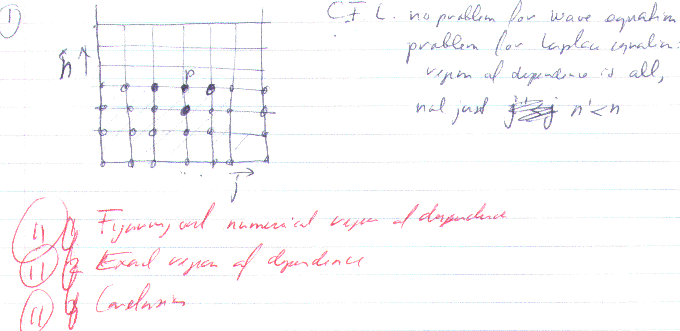 1
C F L. no problem for wave equation
problem for Laplace equation:
region of dependence is all,
n ↑
P
not just n' < n
j
11 Figuring out numerical region of dependence
11 Exact region of dependence
11 Conclusion